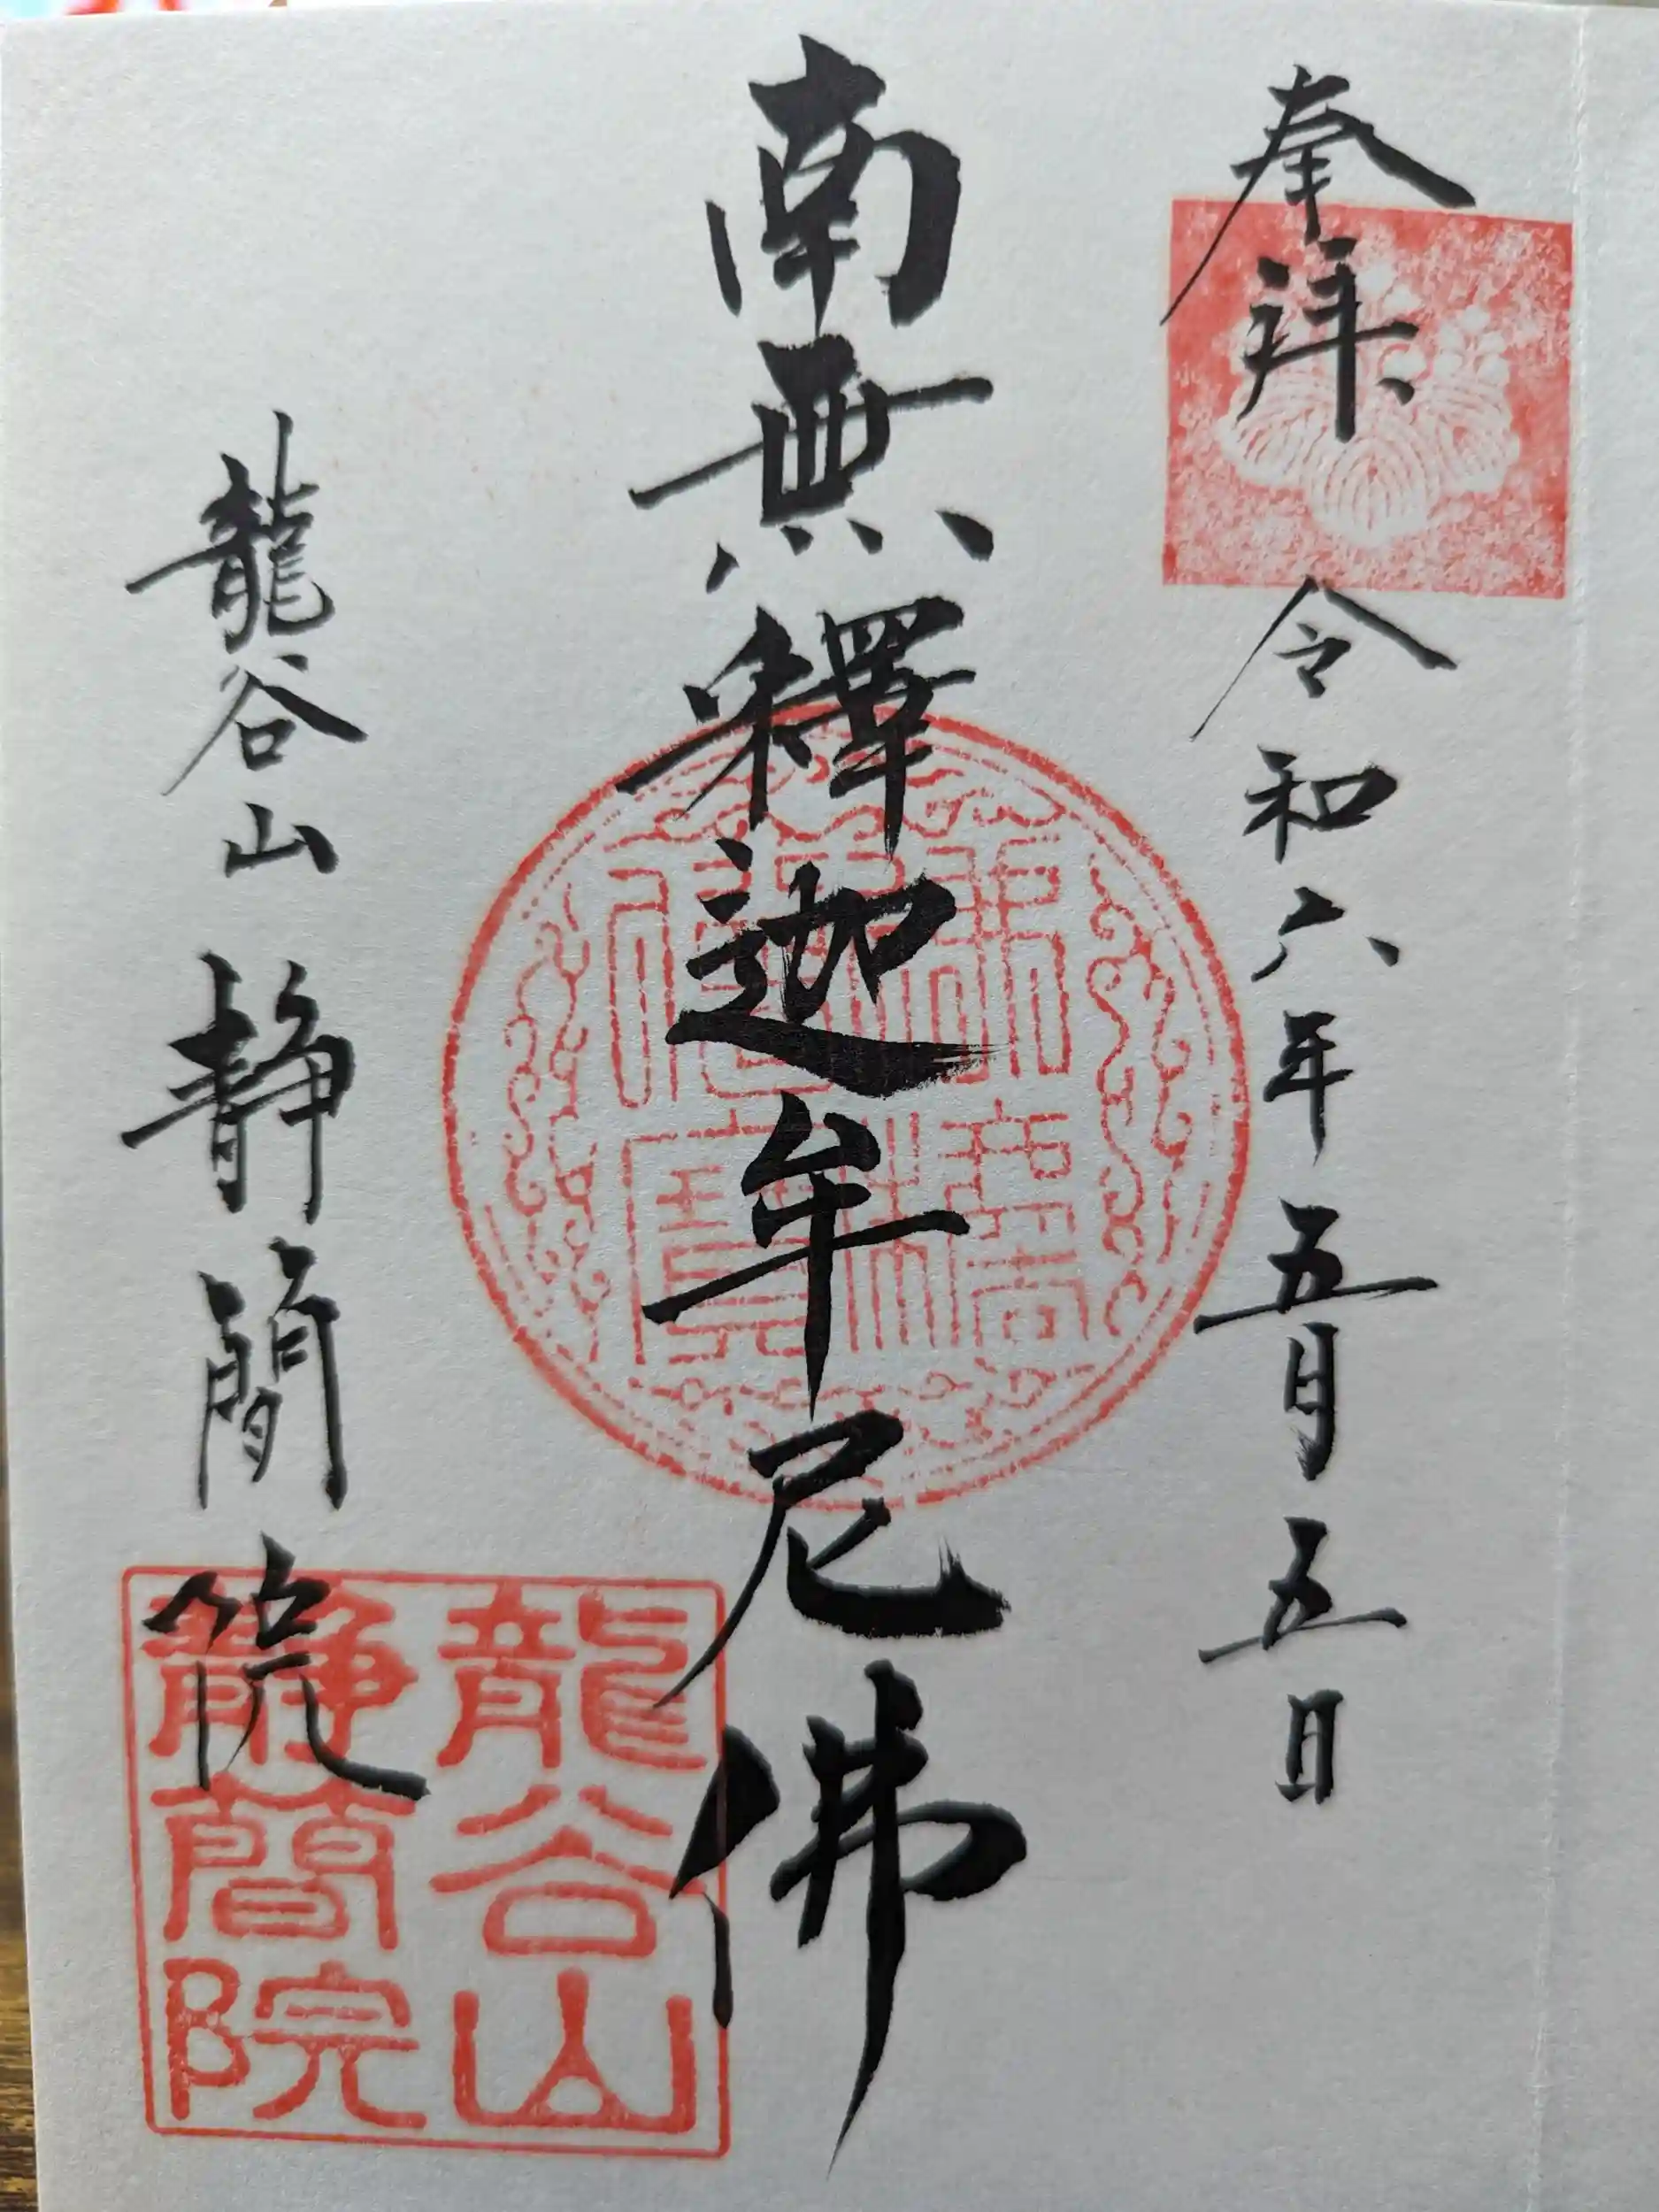 奉拜
令和六年五月五日
南無釋迦牟尼佛
龍谷山 静簡院
龍谷山
静簡院